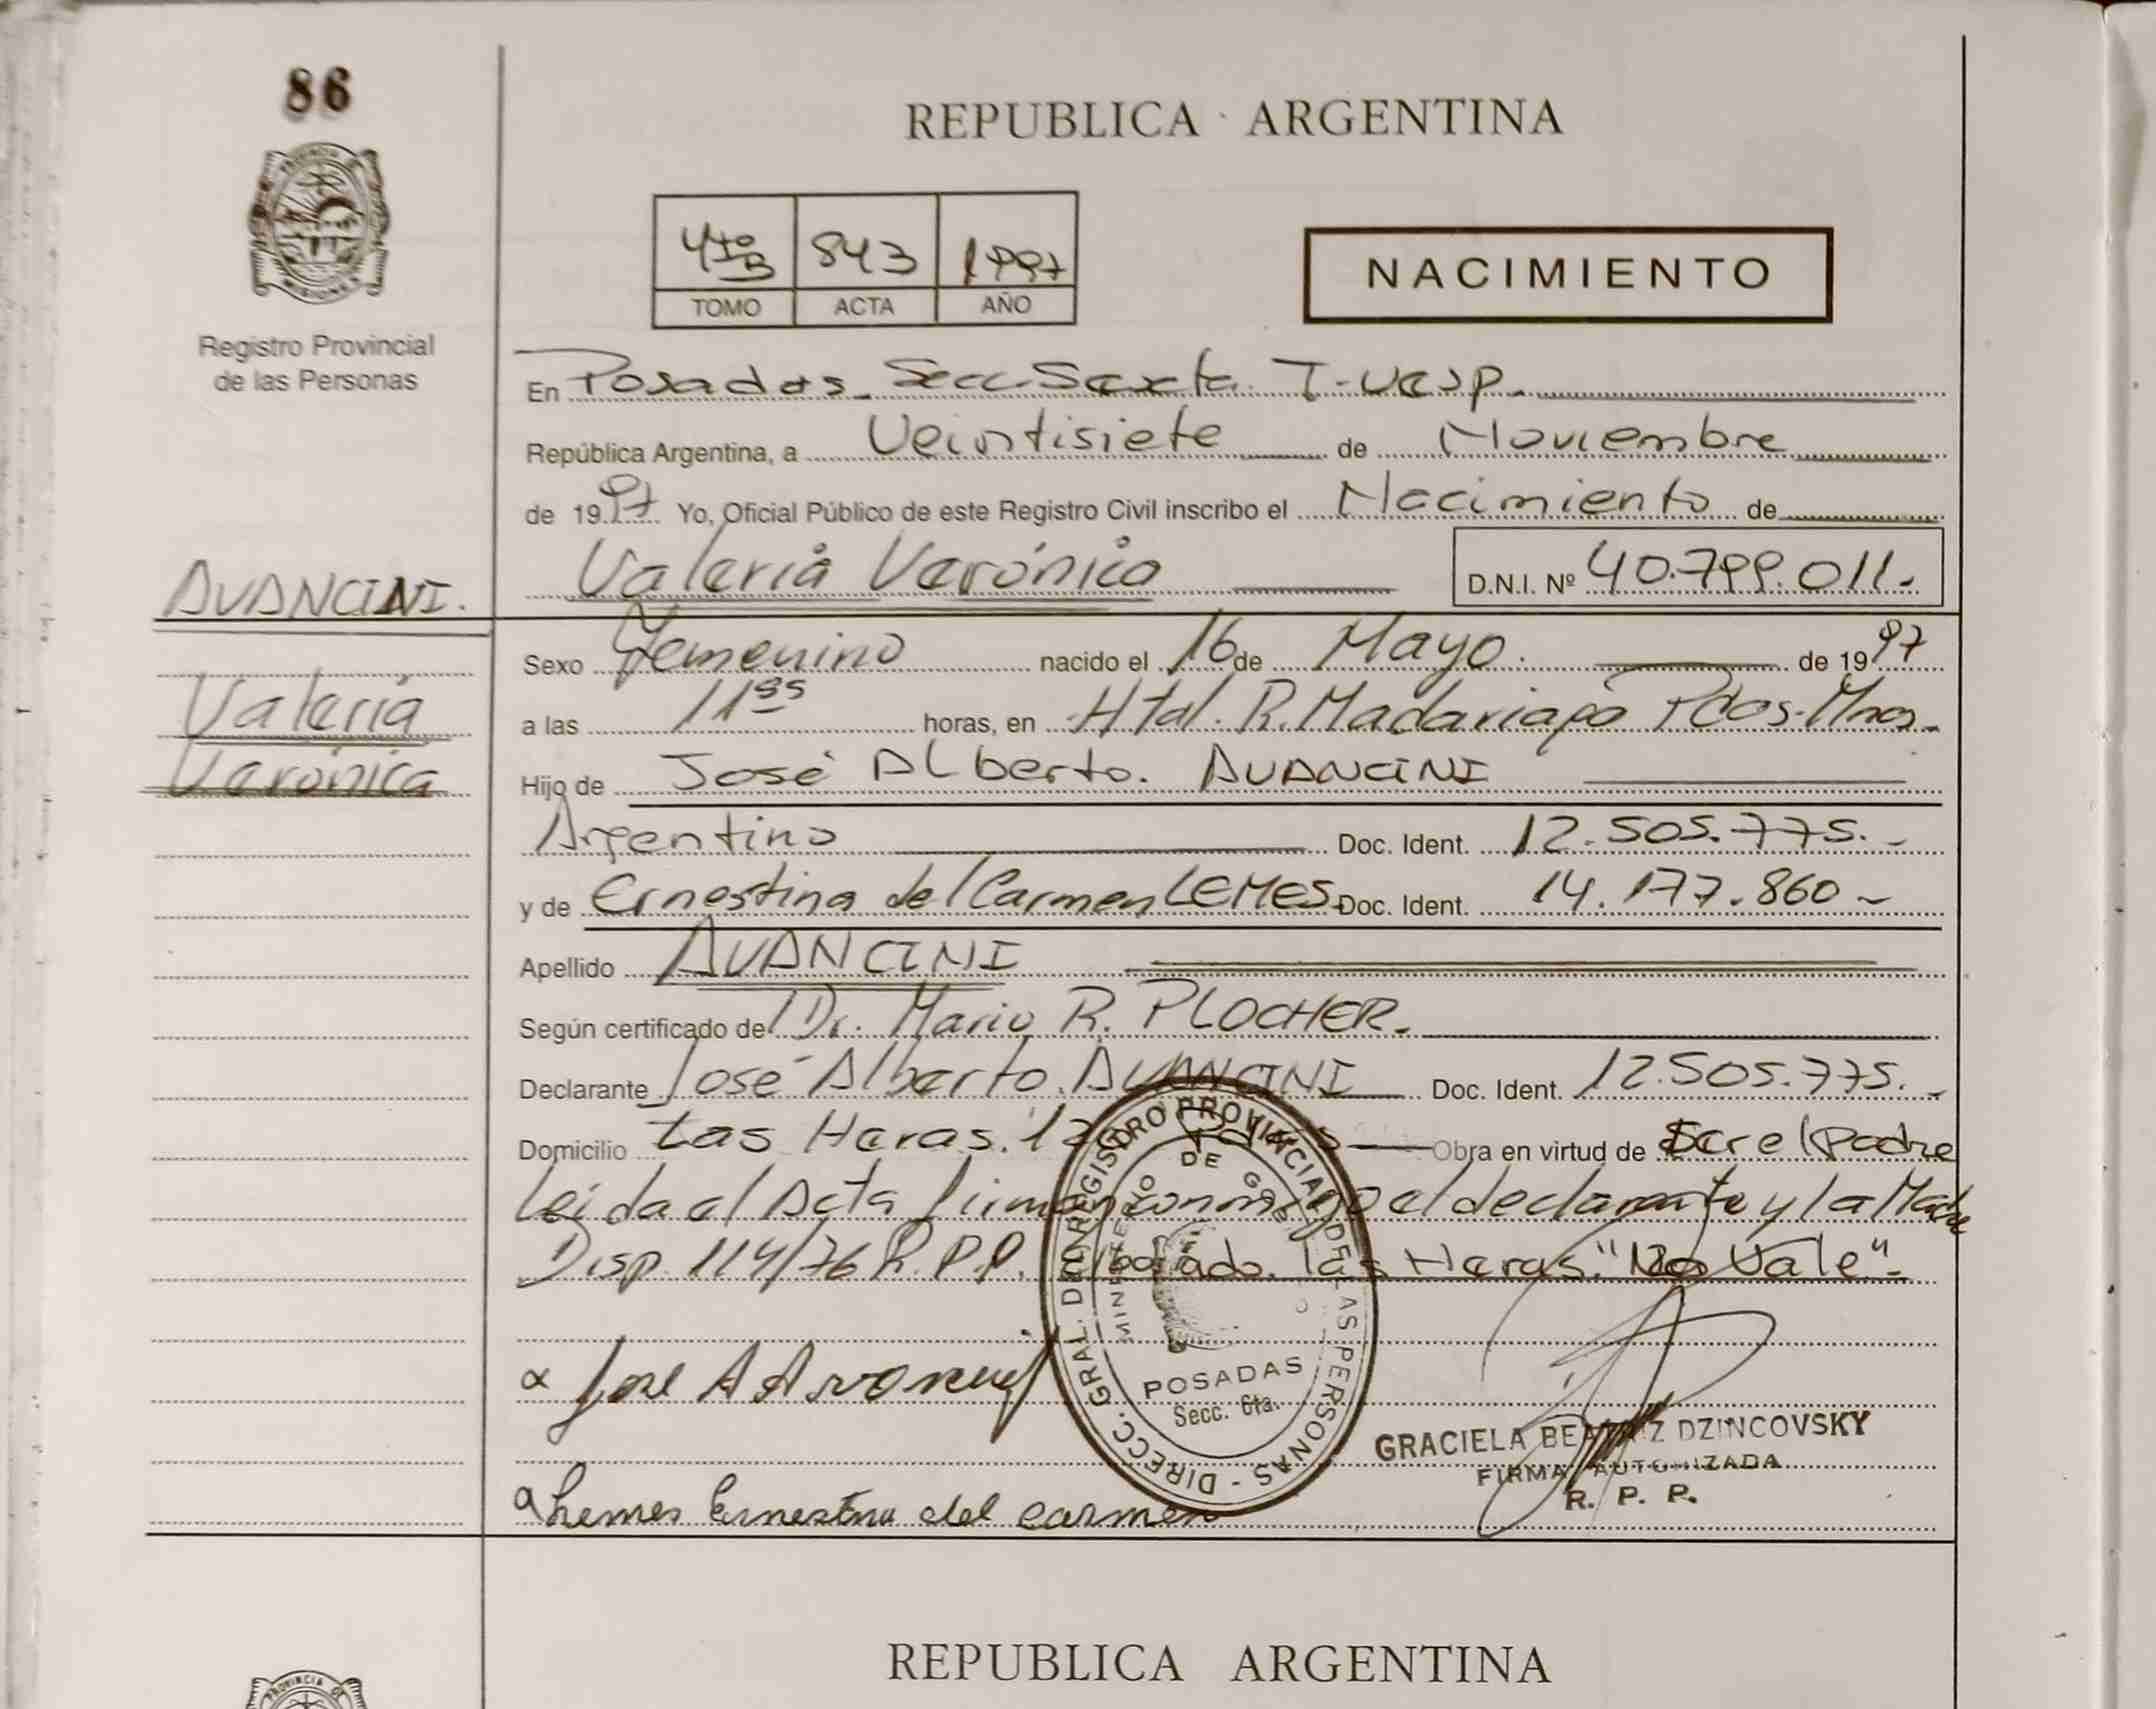 86
REPUBLICA ARGENTINA
4to B 843 1997
TOMO ACTA AÑO
NACIMIENTO
Registro Provincial
de las Personas
En Posadas Secc. Sexta T. vesp.
República Argentina, a Veintisiete de Noviembre
de 1997 Yo, Oficial Público de este Registro Civil inscribo el Nacimiento de
Valeria Verónica D.N.I. Nº 40.799.011.
AVANCINI.
Valeria
Verónica
Sexo Femenino nacido el 16 de Mayo. de 1997
a las 11 horas, en Htal. R. Madariaga Pdas. Mnes.
Hijo de José Alberto. AVANCINI
Argentino Doc. Ident. 12.505.775.
y de Ernestina del Carmen LEMES. Doc. Ident. 14.177.860
Apellido AVANCINI
Según certificado de Dr. Mario R. PLOCHER.
Declarante José Alberto. AVANCINI Doc. Ident. 12.505.775.
Domicilio Las Heras. Obra en virtud de Ser el padre
Leida el Acta firman conmigo el declarante y la Madre
Disp. 114/76 R.P.P. las Heras. "No Vale"
DIRECC. GRAL. DEL REGISTRO PROVINCIAL DE LAS PERSONAS
MINISTERIO DE
POSADAS
Secc. 6ta.
Jose A Avancini
GRACIELA BEATRIZ DZINCOVSKY
FIRMA AUTORIZADA
R. P. P.
Lemes Ernestina del carmen
REPUBLICA ARGENTINA